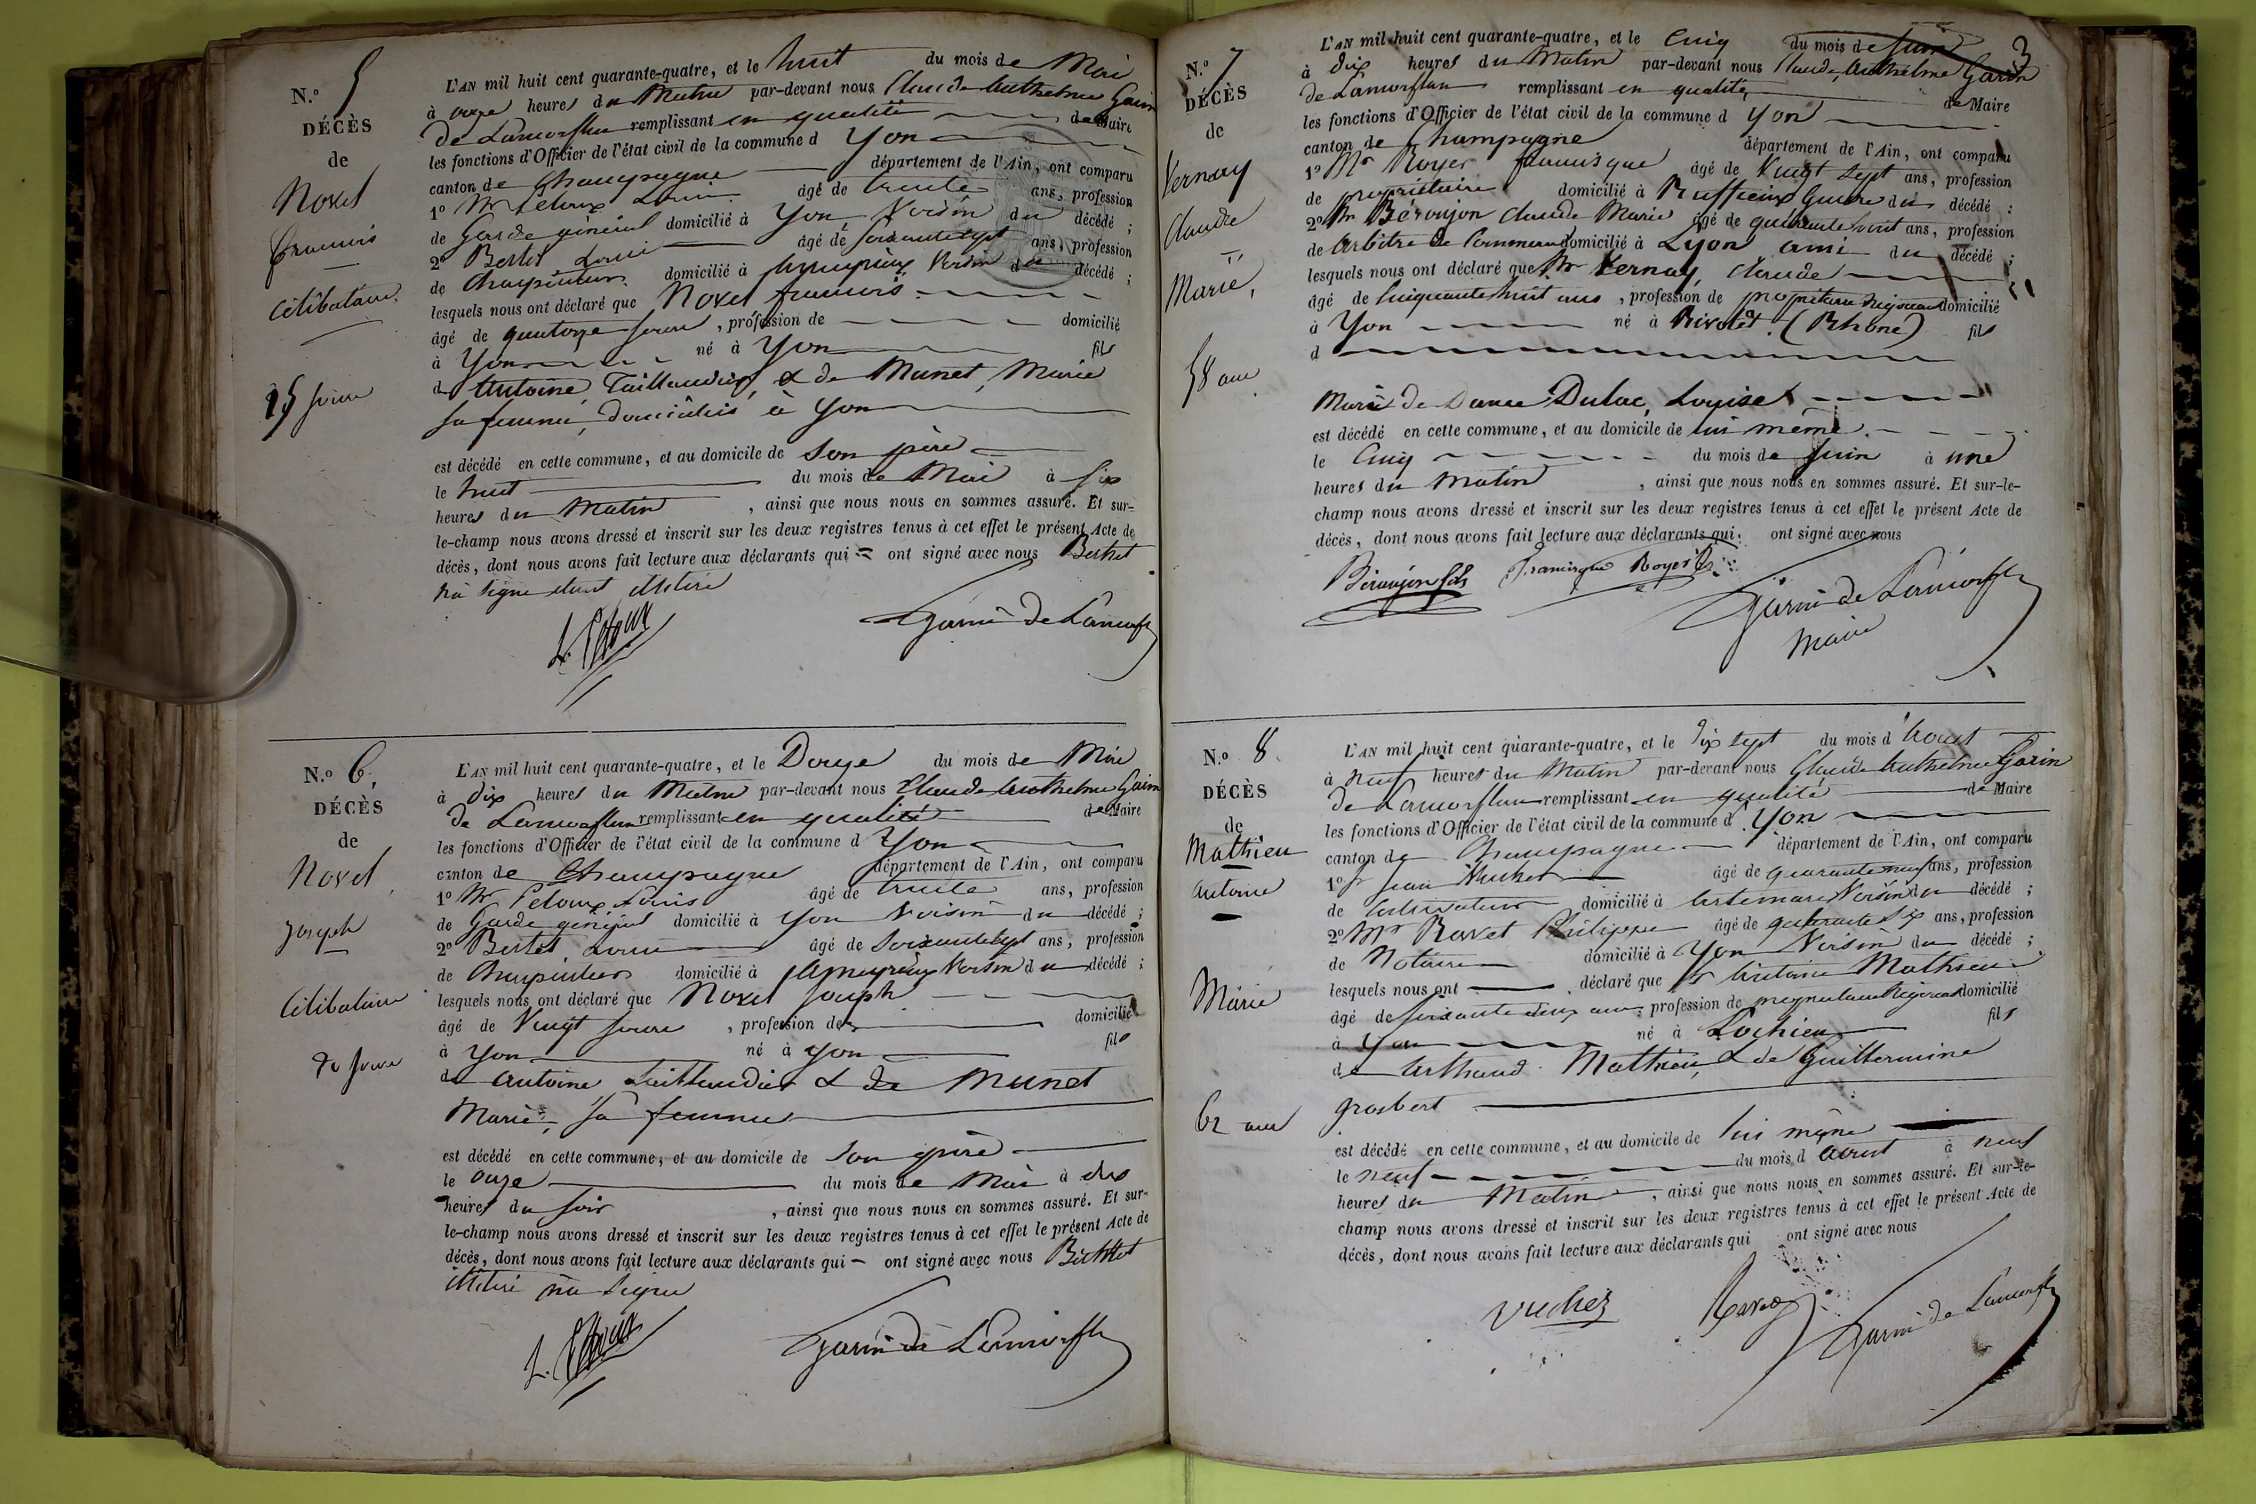 N.o 5
DÉCÈS
de
Noxel
François
Célibataire.
15 jours
L'AN mil huit cent quarante-quatre, et le huit du mois de Mai
à onze heures du Matin par-devant nous Claude Anthelme Garin
de Lamorflan remplissant en qualité de Maire
les fonctions d'Officier de l'état civil de la commune d Yon
canton de Champagne département de l'Ain, ont comparu
1o Mr Peloux Louis âgé de trente ans, profession
de Garde général domicilié à Yon Voisin du décédé ;
2o Bertet Louis âgé de soixante sept ans, profession
de Charpentier domicilié à Ameyzieu Voisin du décédé ;
lesquels nous ont déclaré que Noxel françois
âgé de quatorze jours, profession de domicilié
à Yon né à Yon fils
d Antoine Taillandier & de Munet, Marie
sa femme, domiciliés à Yon
est décédé en cette commune, et au domicile de son père
le huit du mois de Mai à six
heures du Matin, ainsi que nous nous en sommes assuré. Et sur-
le-champ nous avons dressé et inscrit sur les deux registres tenus à cet effet le présent Acte de
décès, dont nous avons fait lecture aux déclarants qui ont signé avec nous Berthet
n'a signé étant illitéré
L. Peloux
Garin de Lamorflan
N.o 6.
DÉCÈS
de
Noxel
Joseph
Célibataire
20 jours
L'AN mil huit cent quarante-quatre, et le Douze du mois de Mai
à dix heures du Matin par-devant nous Claude Anthelme Garin
de Lamorflan remplissant en qualité de Maire
les fonctions d'Officier de l'état civil de la commune d Yon
canton de Champagne département de l'Ain, ont comparu
1o Mr Peloux Louis âgé de trente ans, profession
de Garde général domicilié à Yon Voisin du décédé ;
2o Bertet Louis âgé de soixante sept ans, profession
de Charpentier domicilié à Ameyzieu Voisin du décédé ;
lesquels nous ont déclaré que Noxel Joseph
âgé de Vingt jours, profession de domicilié
à Yon né à Yon fils
de Antoine Taillandier & de Munet
Marie, sa femme
est décédé en cette commune, et au domicile de son père
le onze du mois de Mai à dix
heures du soir, ainsi que nous nous en sommes assuré. Et sur-
le-champ nous avons dressé et inscrit sur les deux registres tenus à cet effet le présent Acte de
décès, dont nous avons fait lecture aux déclarants qui ont signé avec nous Berthet
illitéré n'a signé
L. Peloux
Garin de Lamorflan
3
N.o 7
DÉCÈS
de
Vernay
Claude
Marié,
58 ans
L'AN mil huit cent quarante-quatre, et le Cinq du mois de Juin
à dix heures du Matin par-devant nous Claude Anthelme Garin
de Lamorflan remplissant en qualité de Maire
les fonctions d'Officier de l'état civil de la commune d Yon
canton de Champagne département de l'Ain, ont comparu
1o Mr Royer francisque âgé de Vingt sept ans, profession
de propriétaire domicilié à Ruffieux Gendre du décédé :
2o Mr Béroujon Claude Marie âgé de quarante huit ans, profession
de Arbitre de Commerce domicilié à Lyon ami du décédé ;
lesquels nous ont déclaré que Mr Vernay, Claude
âgé de Cinquante huit ans, profession de propriétaire Négociant domicilié
à Yon né à Rivolet. (Rhône) fils
d
Marié de Dame Dulac, Louise
est décédé en cette commune, et au domicile de lui même.
le Cinq du mois de Juin à une
heures du Matin, ainsi que nous nous en sommes assuré. Et sur-le-
champ nous avons dressé et inscrit sur les deux registres tenus à cet effet le présent Acte de
décès, dont nous avons fait lecture aux déclarants qui ont signé avec nous
Béroujon
Francisque Royer
Garin de Lamorflan
Maire
N.o 8.
DÉCÈS
de
Mathieu
Antoine
Marié
62 ans
L'AN mil huit cent quarante-quatre, et le dix sept du mois d'Aoust
à neuf heures du Matin par-devant nous Claude Anthelme Garin
de Lamorflan remplissant en qualité de Maire
les fonctions d'Officier de l'état civil de la commune d Yon
canton de Champagne département de l'Ain, ont comparu
1o Sr Jean Vuchez âgé de quarante neuf ans, profession
de Cultivateur domicilié à Artemare Voisin du décédé ;
2o Mr Ravet Philippe âgé de quarante six ans, profession
de Notaire domicilié à Yon Voisin du décédé ;
lesquels nous ont déclaré que Sr Antoine Mathieu
âgé de soixante deux ans, profession de propriétaire Négociant domicilié
à Yon né à Lochieu fils
de Arthaud Mathieu & de Guillermine
Grosbert
est décédé en cette commune, et au domicile de lui même
le neuf du mois d aoust à neuf
heures du Matin, ainsi que nous nous en sommes assuré. Et sur-le-
champ nous avons dressé et inscrit sur les deux registres tenus à cet effet le présent Acte de
décès, dont nous avons fait lecture aux déclarants qui ont signé avec nous
Vuchez
Ravet
Garin de Lamorflan